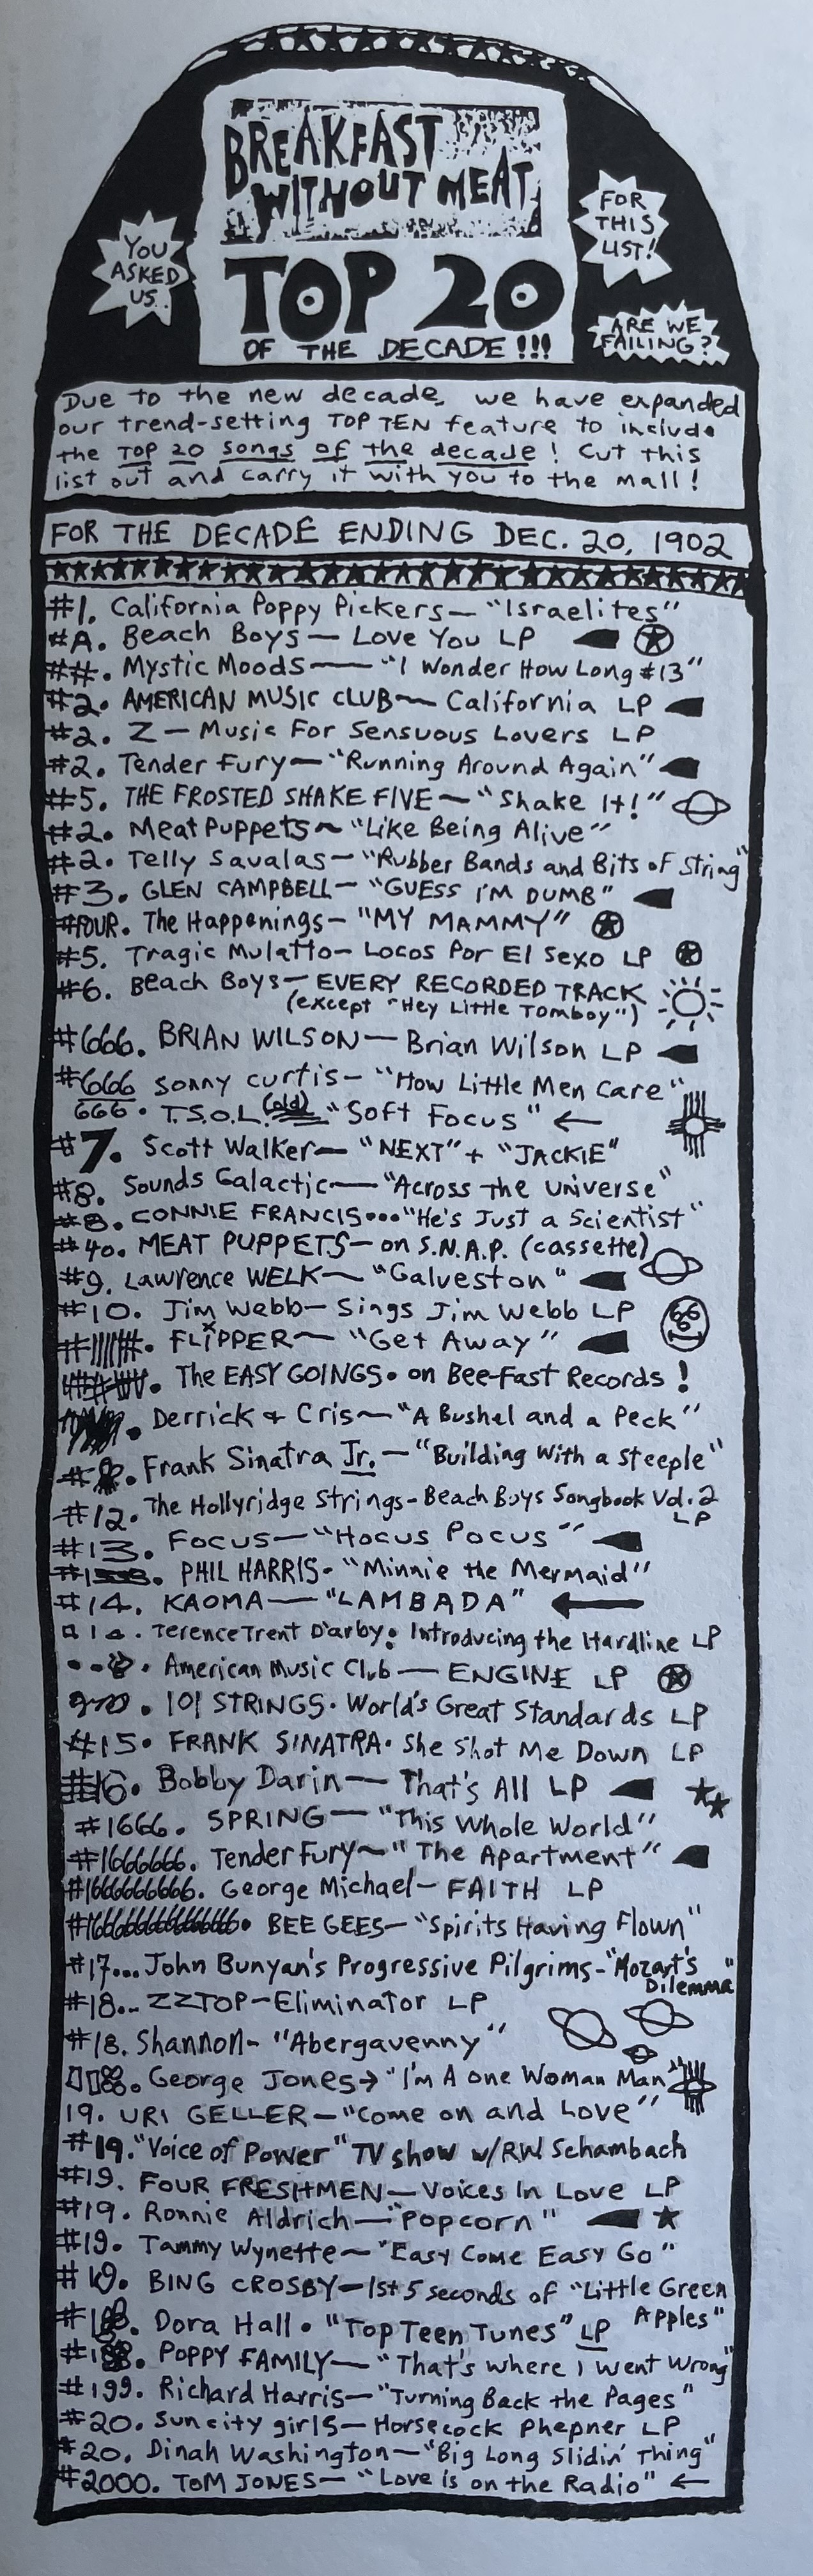 BREAKFAST
WITHOUT MEAT
YOU
ASKED
US..
FOR
THIS
LIST!
TOP 20
OF THE DECADE!!!
ARE WE
FAILING?
Due to the new decade, we have expanded
our trend-setting TOP TEN feature to include
the TOP 20 songs of the decade! Cut this
list out and carry it with you to the mall!
FOR THE DECADE ENDING DEC. 20, 1902
#1. California Poppy Pickers— "Israelites"
#A. Beach Boys— Love You LP
##. Mystic Moods— "I Wonder How Long #13"
#2. AMERICAN MUSIC CLUB— California LP
#2. Z— Music For Sensuous Lovers LP
#2. Tender Fury— "Running Around Again"
#5. THE FROSTED SHAKE FIVE— "Shake It!"
#2. Meat Puppets~ "Like Being Alive"
#2. Telly Savalas— "Rubber Bands and Bits of String"
#3. GLEN CAMPBELL— "GUESS I'M DUMB"
#FOUR. The Happenings— "MY MAMMY"
#5. Tragic Mulatto— Locos Por El Sexo LP
#6. Beach Boys— EVERY RECORDED TRACK
(except "Hey Little Tomboy")
#666. BRIAN WILSON— Brian Wilson LP
#666 Sonny Curtis— "How Little Men Care"
666. T.S.O.L. (old) "Soft Focus" ←
#7. Scott Walker— "NEXT" + "JACKIE"
#8. Sounds Galactic— "Across the Universe"
#8. CONNIE FRANCIS... "He's Just a Scientist"
#40. MEAT PUPPETS— on S.N.A.P. (cassette)
#9. Lawrence WELK— "Galveston"
#10. Jim Webb— Sings Jim Webb LP
FLiPPER— "Get Away"
The EASY GOINGS. on Bee-Fast Records!
Derrick & Cris— "A Bushel and a Peck"
Frank Sinatra Jr.— "Building With a Steeple"
#12. The Hollyridge Strings- Beach Boys Songbook Vol. 2
LP
#13. Focus— "Hocus Pocus"
PHIL HARRIS- "Minnie the Mermaid"
#14. KAOMA— "LAMBADA" ←
Terence Trent D'arby: Introducing the Hardline LP
American Music Club— ENGINE LP
101 STRINGS. World's Great Standards LP
#15. FRANK SINATRA. She Shot Me Down LP
#16. Bobby Darin— That's All LP
#1666. SPRING— "This Whole World"
#1666666. Tender Fury~ "The Apartment"
#1666666666. George Michael— FAITH LP
BEE GEES— "Spirits Having Flown"
#17... John Bunyan's Progressive Pilgrims- "Mozart's
Dilemma"
#18... ZZTOP— Eliminator LP
#18. Shannon- "Abergavenny"
George Jones→ "I'm A one Woman Man"
19. URI GELLER— "Come on and Love"
#19. "Voice of Power" TV show w/RW Schambach
#19. FOUR FRESHMEN— Voices In Love LP
#19. Ronnie Aldrich— "Popcorn"
#19. Tammy Wynette~ "Easy Come Easy Go"
#19. BING CROSBY— 1st 5 seconds of "Little Green
Apples"
Dora Hall. "Top Teen Tunes" LP
POPPY FAMILY— "That's where I went wrong"
#199. Richard Harris— "Turning Back the Pages"
#20. Sun city girls— Horsecock Phepner LP
#20. Dinah Washington— "Big Long Slidin' Thing"
#2000. TOM JONES— "Love is on the Radio" ←